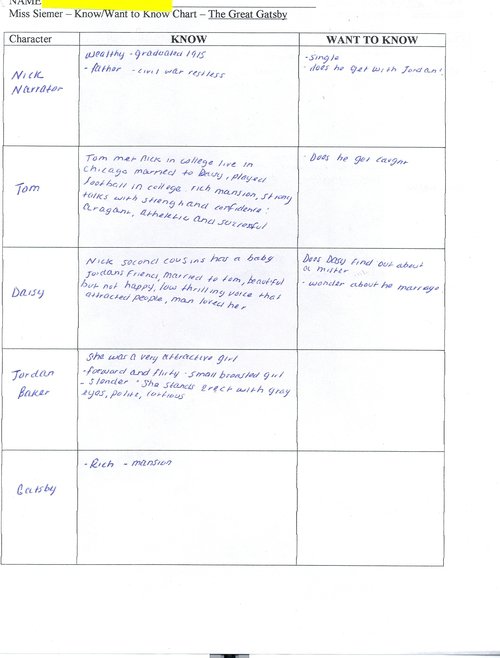 NAME
Miss Siemer – Know/Want to Know Chart – The Great Gatsby
Character KNOW WANT TO KNOW
Nick
Narrator
wealthy - graduated 1915
- father - civil war restless
- single
- does he get with Jordan?
Tom
Tom met Nick in college live in
Chicago married to Daisy, played
football in college rich mansion, strong
talks with strengh and confidence:
aragant, athletic and successful
- Does he got caught
Daisy
Nick second cousins has a baby
Jordans friend, married to tom, beautiful
but not happy, low thrilling voice that
attracted people, man loved her
Does Daisy find out about
a mister
- wonder about he marreage
Jordan
Baker
She was a very attractive girl
- forward and flirty - small breasted girl
- slender - She stands erect with gray
eyes, polite,
Gatsby
- Rich - mansion